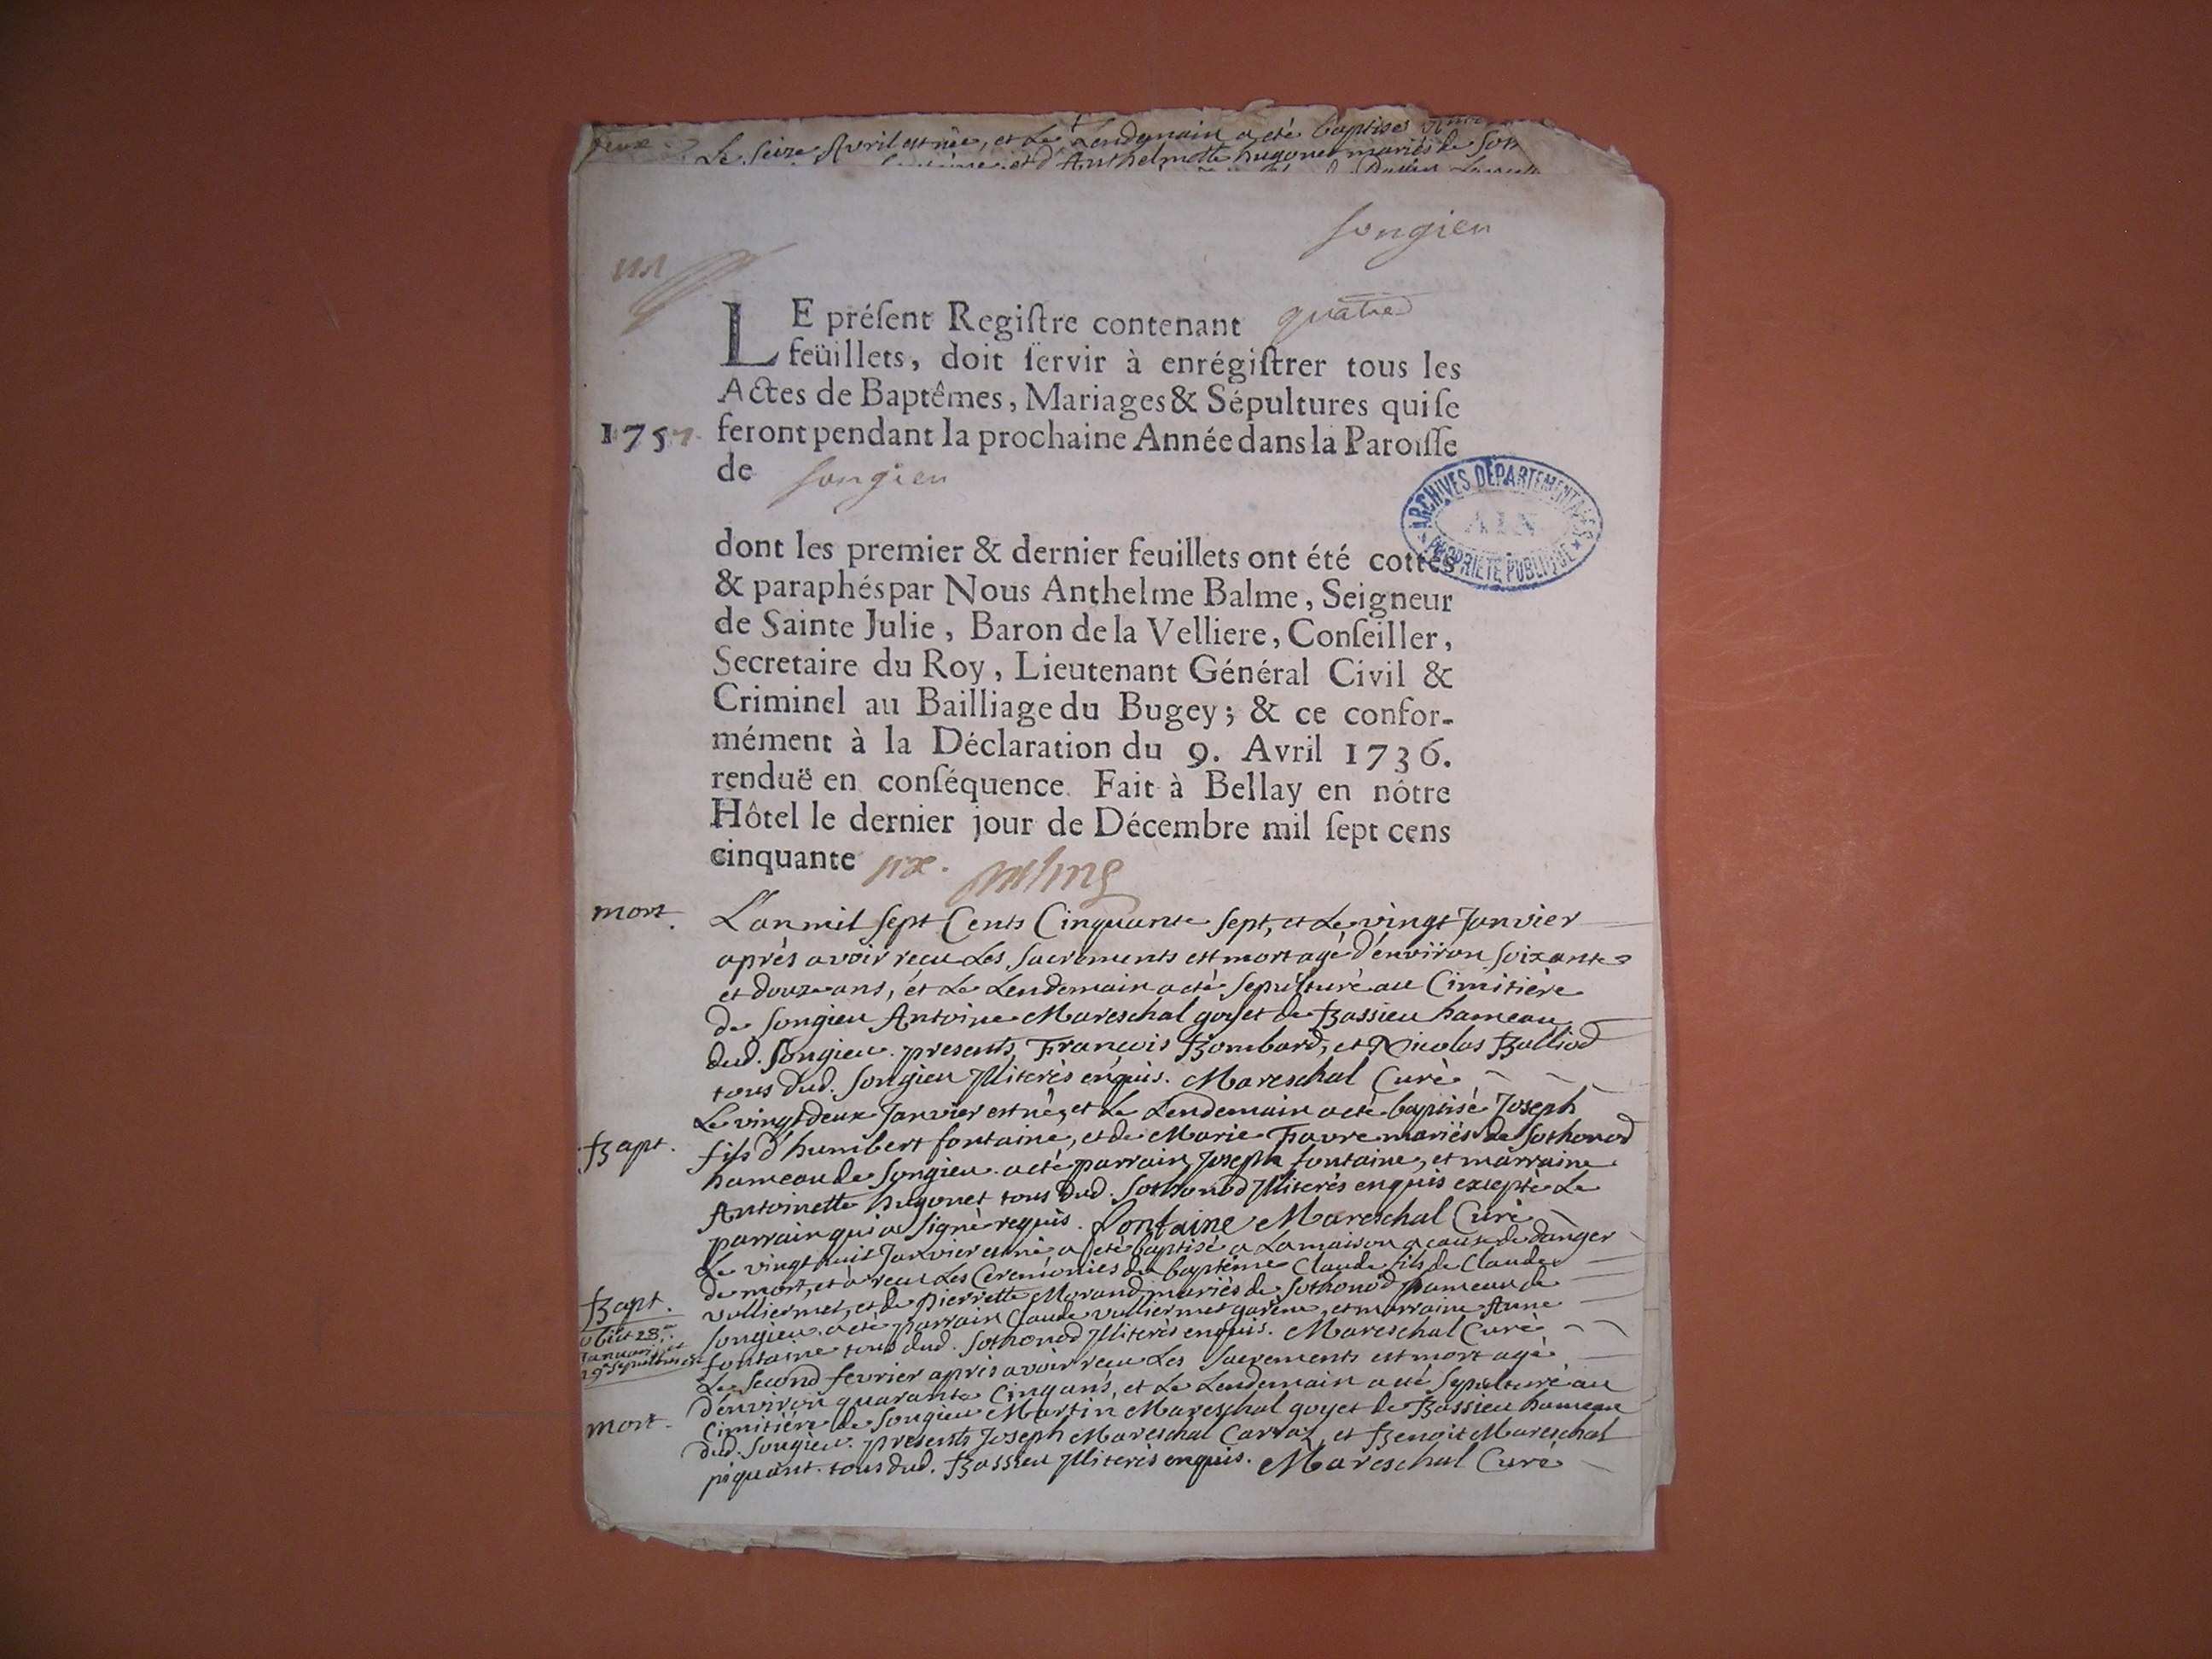 Le seize Avril est née, et Le Lendemain a eté baptisée
et d'Anthelmette hugonet mariés de Soth
Songieu
LE préſent Regiſtre contenant quatre
feüillets, doit ſervir à enrégiſtrer tous les
Actes de Baptêmes, Mariages & Sépultures qui ſe
1757 feront pendant la prochaine Année dans la Paroiſſe
de Songieu
ARCHIVES DÉPARTEMENTALES
AIN
PROPRIÉTÉ PUBLIQUE
dont les premier & dernier feuillets ont été cottés
& paraphés par Nous Anthelme Balme, Seigneur
de Sainte Julie, Baron de la Velliere, Conſeiller,
Secretaire du Roy, Lieutenant Général Civil &
Criminel au Bailliage du Bugey; & ce confor-
mément à la Déclaration du 9. Avril 1736.
renduë en conſéquence. Fait à Bellay en nôtre
Hôtel le dernier jour de Décembre mil ſept cens
cinquante six.
mort. L'an mil sept Cents Cinquante sept, et Le vingt Janvier
après avoir reçu Les Sacrements est mort agé d'environ soixante
et douze ans, et Le Lendemain a eté sepulturé au Cimitière
de Songieu Antoine Mareschal goyet de Bassieu hameau
dud. Songieu. presents François Bombard, et Nicolas Balliod
tous dud. Songieu Illiterés enquis. Mareschal Curé
Le vingt deux Janvier est né, et Le Lendemain a eté baptisé Joseph
Bapt. fils d'humbert fontaine, et de Marie Favre mariés de Sothonod
hameau de Songieu. a eté parrain Joseph fontaine, et marraine
Antoinette hugonet tous dud. Sothonod Illiterés enquis excepté Le
parrain qui a signé requis. Fontaine Mareschal Curé
Le vingt huit Janvier est né a eté baptisé a La maison a cause de danger
de mort, et a reçu Les Ceremonies du baptême Claude fils de Claude
Bapt. vulliermet, et de pierrette Morand mariés de Sothonod hameau de
obiit 28a Songieu. a eté parrain Claude vulliermet garene, et marraine Anne
Januarii, et fontaine tous dud. Sothonod Illiterés enquis. Mareschal Curé
29a sepultus est Le second fevrier après avoir reçu Les Sacrements est mort agé
d'environ quarante Cinq ans, et Le Lendemain a eté sepulturé au
mort. Cimitière de Songieu Martin Mareschal goyet de Bassieu hameau
dud. Songieu. presents Joseph Mareschal Carraz, et Benoit Mareschal
piquant. tous dud. Bassieu Illiterés enquis. Mareschal Curé